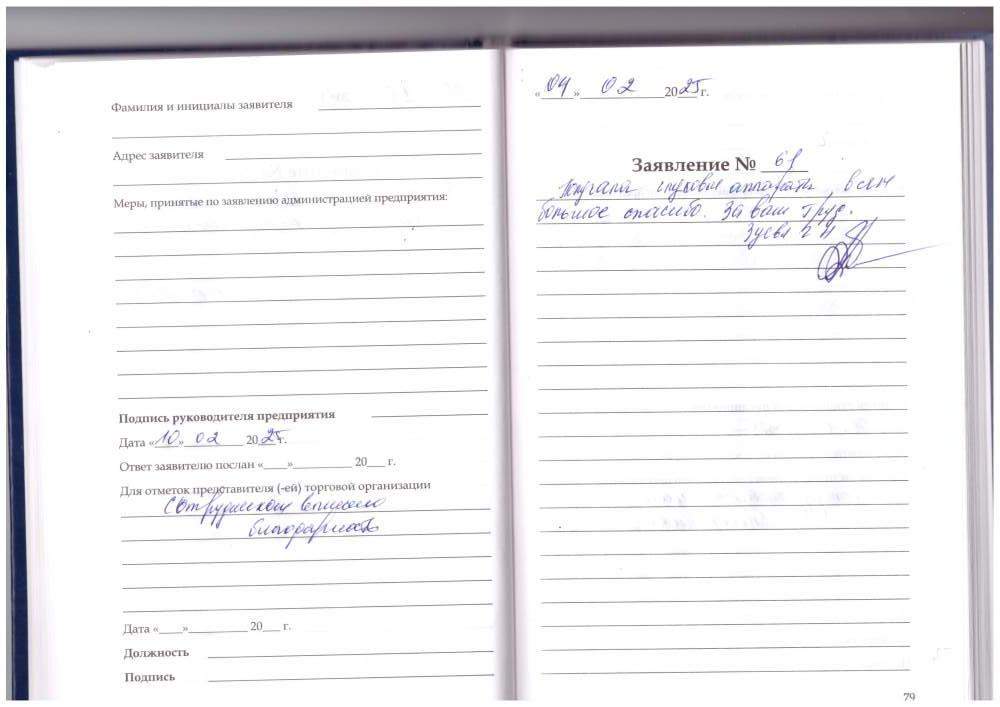 Фамилия и инициалы заявителя
Адрес заявителя
Меры, принятые по заявлению администрацией предприятия:
Подпись руководителя предприятия
Дата «10» 02 2025 г.
Ответ заявителю послан «____»__________ 20___ г.
Для отметок представителя (-ей) торговой организации
Сотрудникам
благодарность
Дата «____»__________ 20___ г.
Должность
Подпись
«04» 02 2025 г.
Заявление № 61
Получала слуховые аппараты, всем
большое спасибо. За ваш труд.
Зуева
79